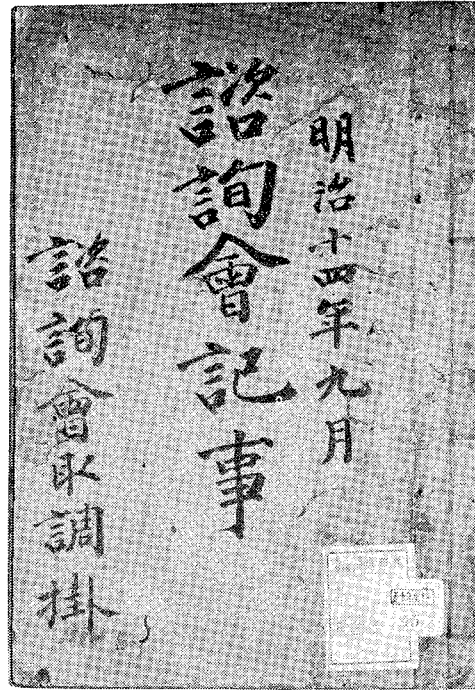 明治十四年九月
諮詢會記事
諮詢會取調掛